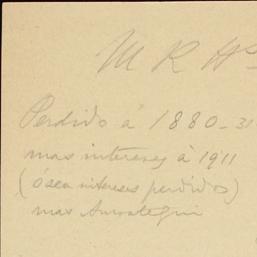 M R H
Perdido á 1880-31
mas intereses á 1911
(ósea intereses perdidos)
mas